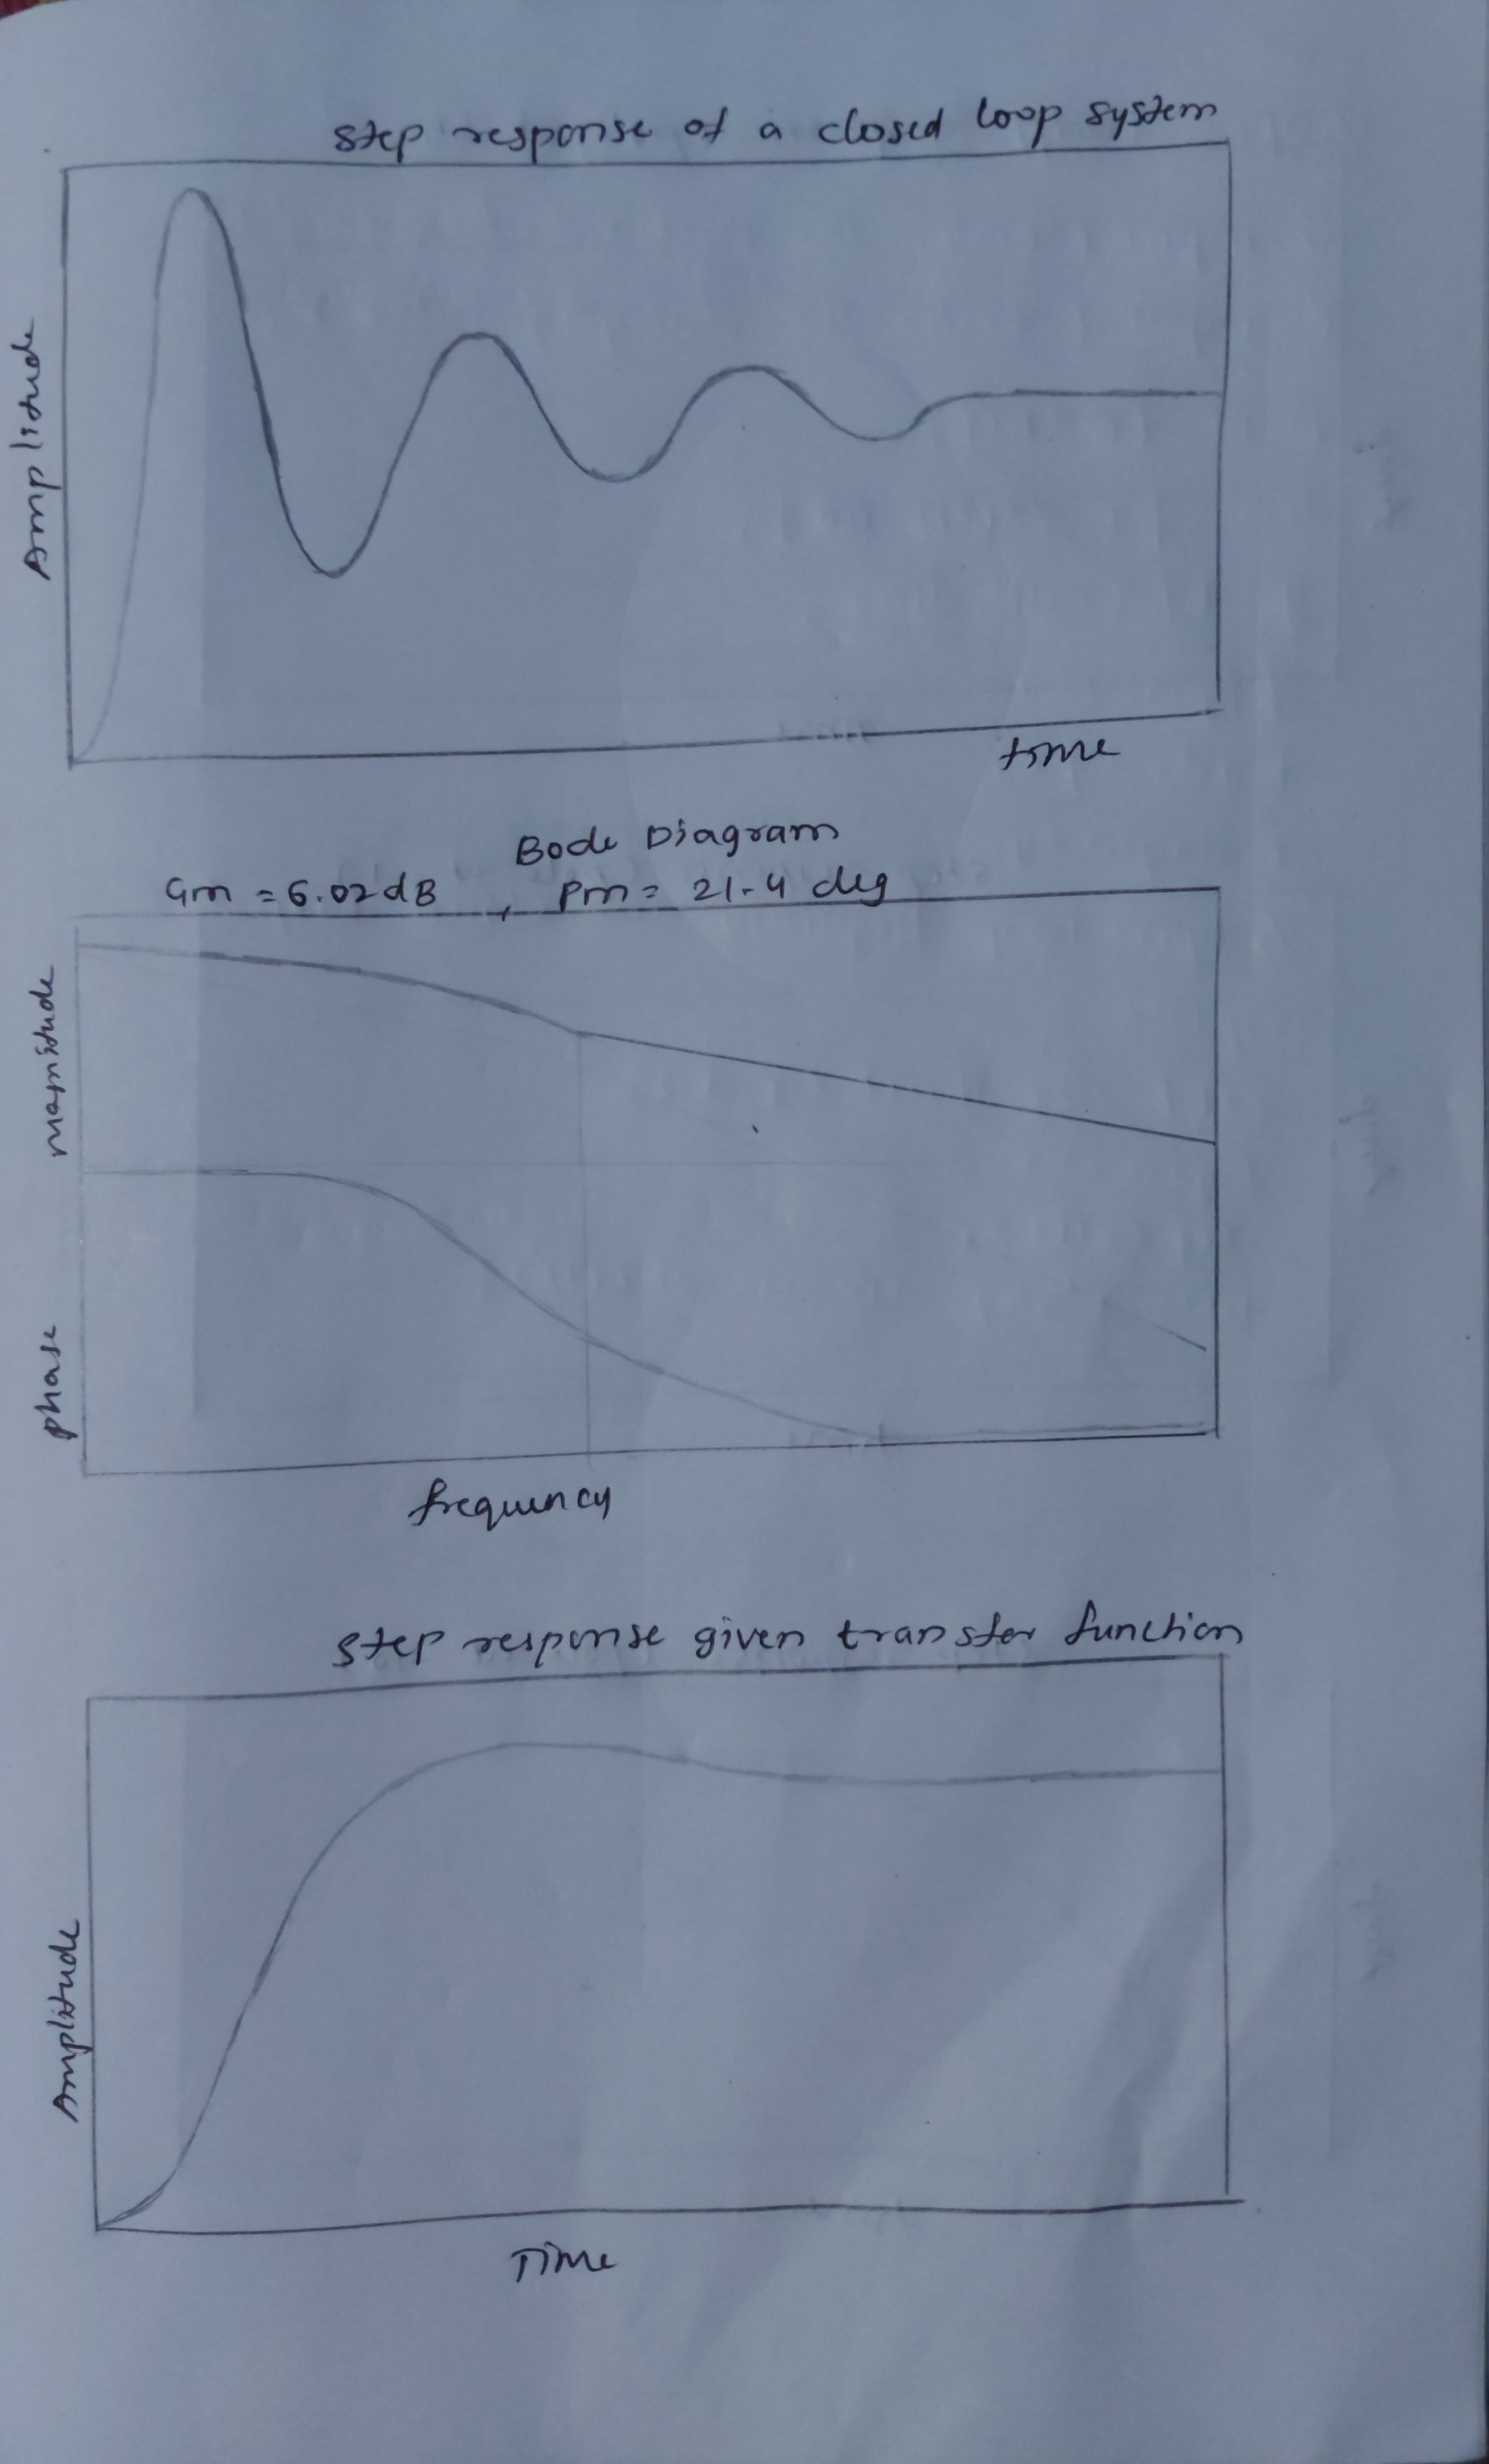 step response of a closed loop system
Amplitude
time
Bode Diagram
Gm = 6.02 dB , Pm = 21.4 deg
magnitude
phase
frequency
step response given transfer function
Amplitude
Time